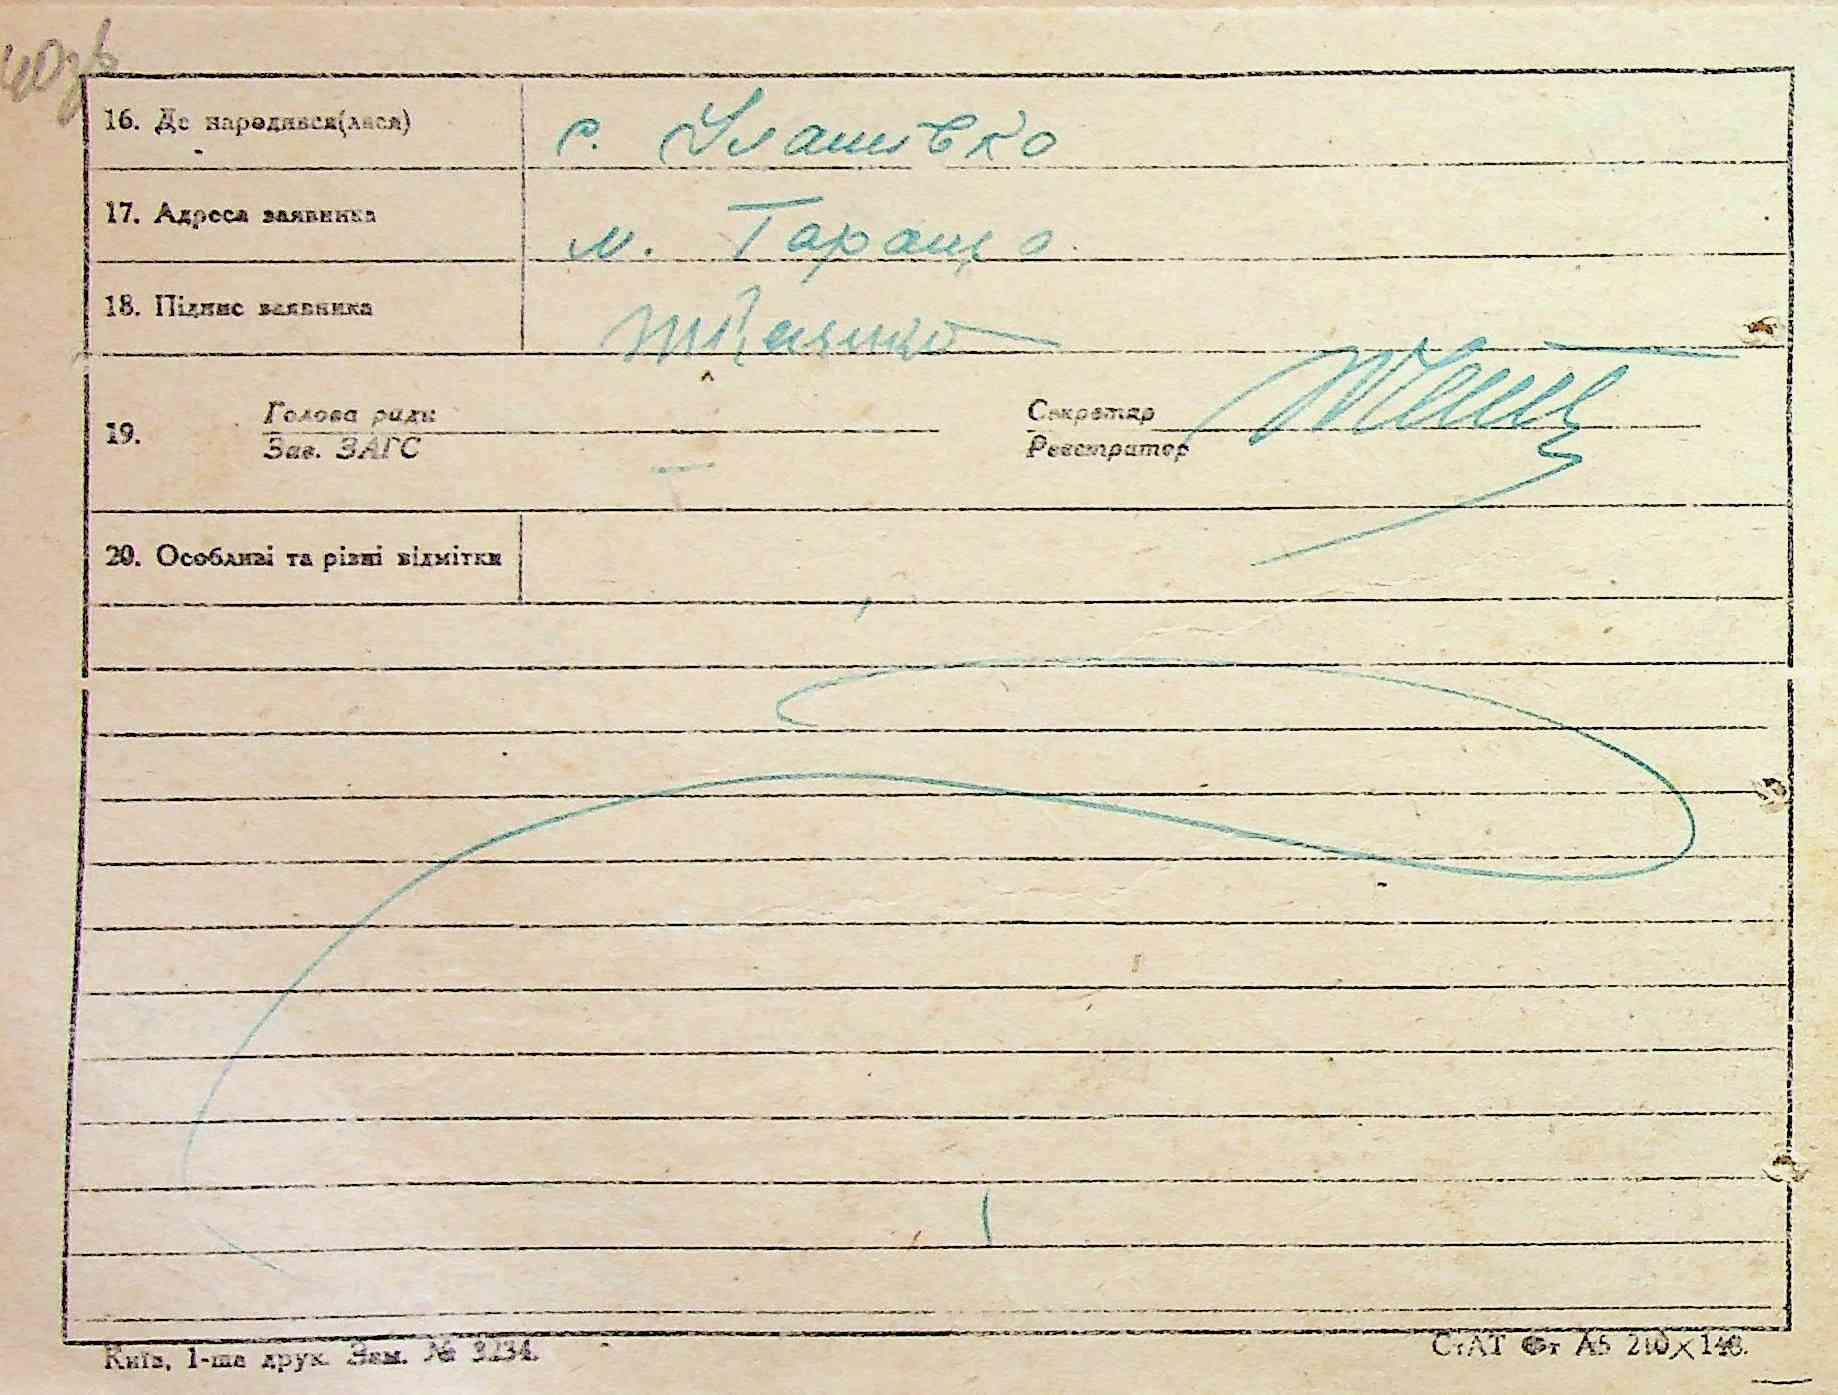 16. Де народився(лася) с. Улашівка
17. Адреса заявника м. Тараща
18. Підпис заявника
19. Голова ради Секретар
Зав. ЗАГС Реєстратор
20. Особливі та різні відмітки
Київ, 1-ша друк. Зам. № 3234. СтАТ Фт А5 210×148.